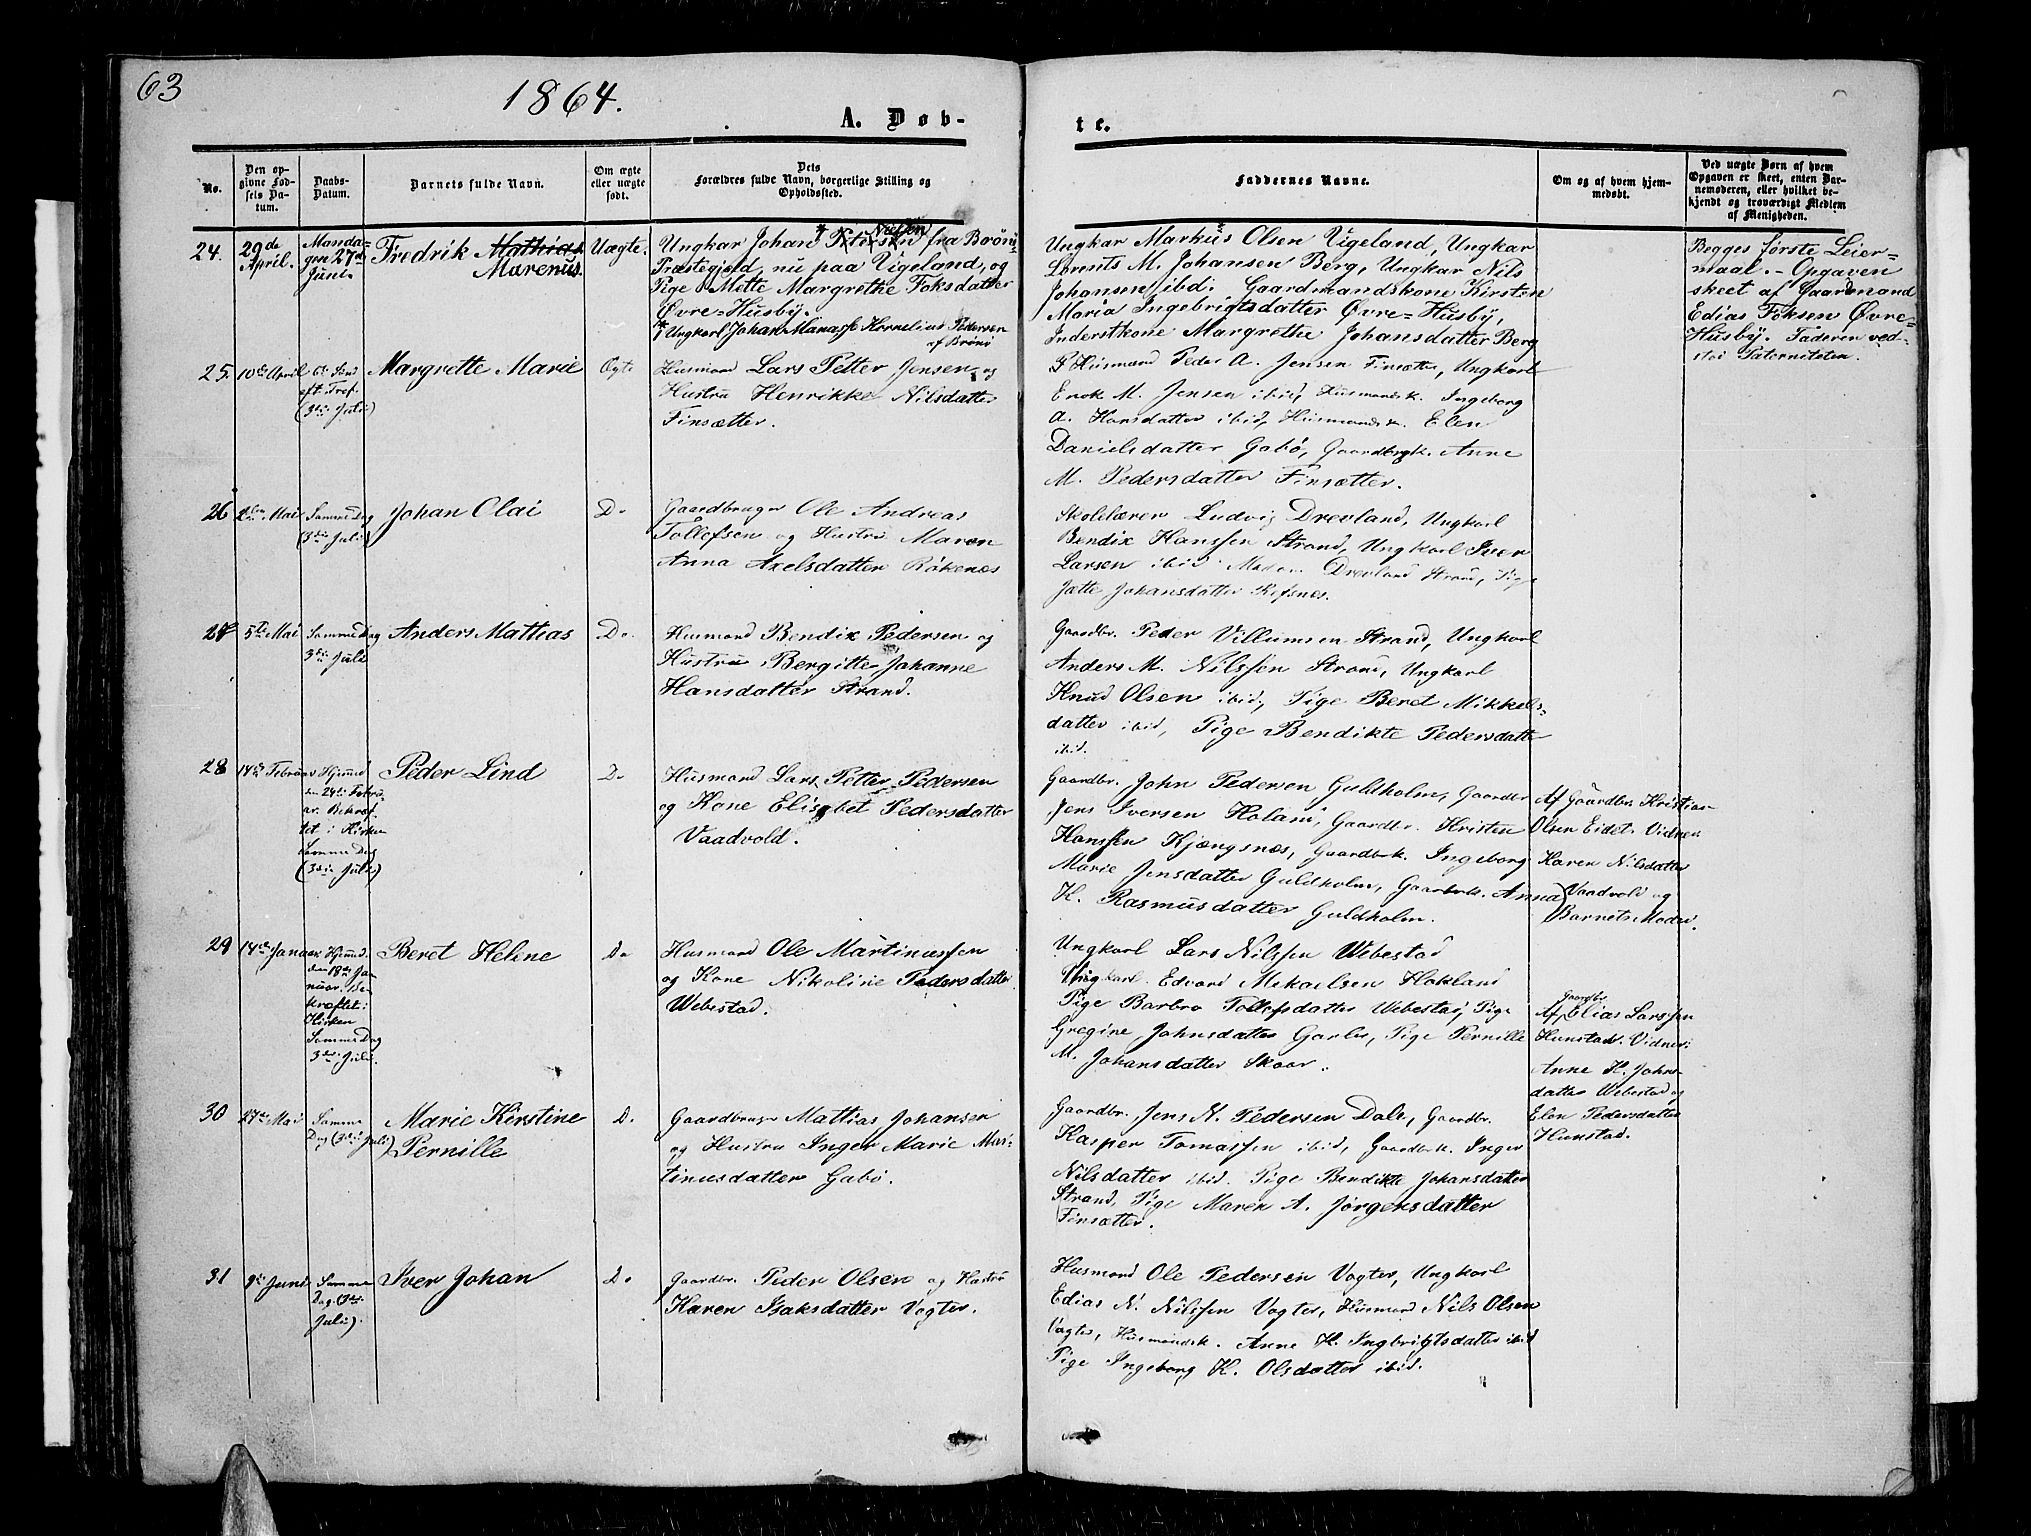 63
1864.
A. Døb-
te.
No.
Den op-
givne Fød-
sels Da-
tum.
Daabs-
Datum.
Barnets fulde Navn.
Om ægte
eller uægte
født.
Dets
Forældres fulde Navn, borgerlige Stilling og
Opholdssted.
Faddernes Navne.
Om og af hvem hjem-
medøbt.
Ved uægte Børn af hvem
Opgaven er skeet, enten Bar-
nemoderen, eller hvilket be-
kjendt og troværdigt Medlem
af Menigheden.
24.
29de
April.
Manda-
gen 27de
Juni.
Fredrik Mathias
Marenus.
Uægte.
Ungkar Johan Petersen fra Brönö
Præstegjeld, nu paa Vigeland, og
Pige Mette Margrethe Foksdatter
Øvre-Husby.
* Ungkarl Johan Manasse Kornelius Pedersen
af Brönö
Ungkar Markus Olsen Vigeland, Ungkar
Lorents M. Johansen Berg, Ungkar Nils
Johansen ibd. Gaardmandskone Kirsten
Maria Ingebrigtsdatter Øvre-Husby,
Inderstkone Margrethe Johansdatter Berg
Begges første Leier-
maal. - Opgaven
skeet af Gaardmand
Edias Foksen Øvre-
Husby. Faderen ved-
stod Paterniteten.
25.
10de April
6te Sönd
eft. Tref.
(3die Juli)
Margrette Marie
Ægte
Husmand Lars Petter Jensen og
Hustru Henrikke Nilsdatter
Finsætter.
Husmand Peder A. Jensen Finsætter, Ungkarl
Enok M. Jensen ibid, Husmandsk. Ingeborg
A. Hansdatter ibid, Husmandsk. Elen
Danielsdatter Gabö, Gaardbrgk. Anne
M. Pedersdatter Finsætter.
26
2den Mai
Samme Dag
(3die Juli)
Johan Olai
Do
Gaardbruger Ole Andreas
Tollefsen og Hustru Maren
Anna Axelsdatter Rökenes
Skolelærer Ludvig Drevland, Ungkarl
Bendix Hanssen Strand, Ungkarl Iver
Larsen ibid. Madam Drevland Strand, Pige
Jætte Johansdatter Refsnes.
27
5te Mai
Samme Dag
3die Juli
Anders Mattias
Do.
Husmand Bendix Pedersen og
Hustru Bergitte Johanne
Hansdatter Strand.
Gaardbr. Peder Villumsen Strand, Ungkarl
Anders M. Nilssen Strand, Ungkarl
Knud Olsen ibid, Pige Beret Mikkels-
datter ibid, Pige Bendikte Pedersdatter
ibid.
28
14de Februar
Hjemmd
den 24de Febru-
ar. Bekræf-
tet i Kirken
Samme Dag
(3die Juli)
Peder Lind
Do
Husmand Lars Petter Pedersen
og Kone Elisabet Pedersdatter
Vaadvold.
Gaardbr. John Pedersen Guldholm, Gaardbr
Jens Iversen Holam, Gaardbr. Kristen
Hanssen Kjængsnæs, Gaardbrk. Ingeborg
Marie Jensdatter Guldholm, Gaardbrk. Anna
H. Rasmusdatter Guldholm.
Af Gaardbr. Kristian
Olsen Eidet. Vidner
Karen Nilsdatter
Vaadvold og
Barnets Moder.
29
14de Januar
Hjemmd.
den 18de Ja-
nuar. Be-
kræftet i
Kirken
Samme Dag
3die Juli.
Beret Helene
Do
Husmand Ole Martinussen
og Kone Nikoline Pedersdatter
Webestad.
Ungkarl Lars Nilssen Webestad
Ungkarl Edvard Mikaelsen Hokland
Pige Barbro Tollefsdatter Webestad, Pige
Gregine Johnsdatter Garles, Pige Pernille
M. Johansdatter Skaar.
Gaardbr
Af Elias Larssen
Hunstad. Vidner:
Anne H. Johns-
datter Webestad og
Elen Pedersdatter
Hunstad.
30
27de Mai
Samme
Dag (3die Juli)
Marie Kirstine
Pernille
Do.
Gaardbruger Mattias Johansen
og Hustru Inger Marie Mar-
tinusdatter Gabö.
Gaardbr. Jens N. Pedersen Dale, Gaardbr.
Kasper Tomassen ibid, Gaardbrk. Inger
Nilsdatter ibid. Pige Bendikte Johansdatter
Strand, Pige Maren A. Jörgensdatter
Finsætter.
31
9de Juni
Samme
Dag (3die
Juli).
Iver Johan
Do
Gaardbr. Peder Olsen og Hustru
Karen Isaksdatter Vogter.
Husmand Ole Pedersen Vogter, Ungkarl
Edias N. Nilssen Vogter, Husmand Nils Olsen
Vogter, Husmandsk. Anne H. Ingbrigtsdatter ibid
Pige Ingeborg K. Olsdatter ibid.